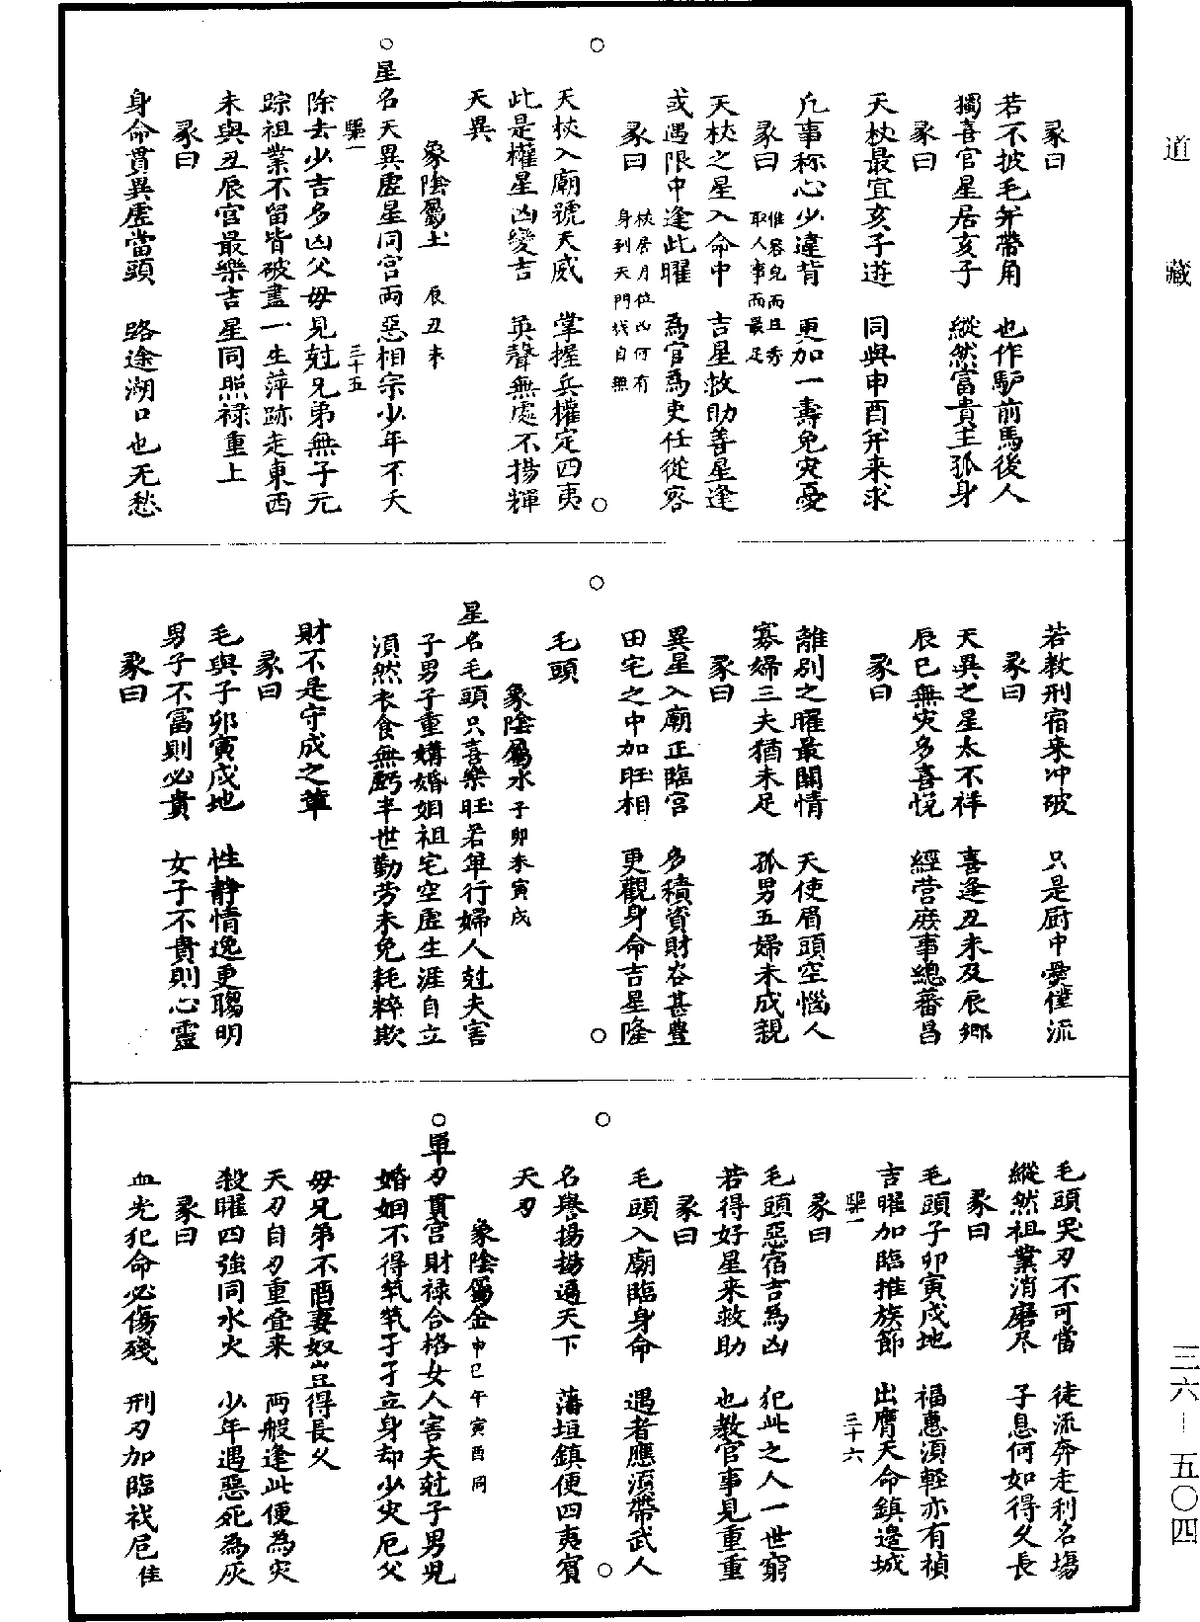 道藏
三六—五〇四
彖曰
若不披毛并帶角　也作馿前馬後人
獨喜官星居亥子　縱然富貴主孤身
彖曰
天杖最宜亥子遊　同與申酉并来求
凢事称心少違背　更加一壽免灾憂
彖曰　惟容皃而且秀
取人事而最足
天杖之星入命中　吉星救助善星逢
或遇限中逢此曜　為官為吏任從容
彖曰　杖居月位凶何有
身到天門找自無
天杖入廟號天威　掌握兵權定四夷
此是權星凶變吉　英聲無處不揚輝
天異
象陰屬土　辰丑未
○星名天異虛星同宫兩惡相宗少年不夭
駈一　三十五
除去少吉多凶父毋見尅兄弟無子元
踪祖業不留皆破盡一生萍跡走東西
未與丑辰宫最樂吉星同照禄重上
彖曰
身命貫異虛當頭　路途湖口也无愁
若教刑宿来冲破　只是厨中㸑僮流
彖曰
天異之星太不祥　喜逢丑未及辰鄉
辰巳無灾多喜悅　經营庶事總蕃昌
彖曰
離别之曜最關情　天使眉頭空惱人
寡婦三夫猶未足　孤男五婦未成親
彖曰
異星入廟正臨宫　多積資財吝甚豊
田宅之中加旺相　更觀身命吉星隆
毛頭
象陰屬水　子卯未寅戍
星名毛頭只喜樂旺若单行婦人尅夫害
子男子重媾婚姻祖宅空虛生涯自立
湏然衣食無虧半世勤劳未免耗粹欺
財不是守成之輩
彖曰
毛與子卯寅戍地　性静情逸更聰明
男子不冨則必貴　女子不貴則心靈
彖曰
毛頭哭刃不可當　徒流奔走利名塲
縱然祖業消磨尽　子息何如得久長
彖曰
毛頭子卯寅戍地　福惠湏輕亦有禎
吉曜加臨推族節　出膺天命鎮邉城
駈一　三十六
彖曰
毛頭惡宿吉為凶　犯此之人一世窮
若得好星来救助　也教官事見重重
彖曰
毛頭入廟臨身命　遇者應湏帶武人
名譽揚揚通天下　藩垣鎮便四夷賓
天刃
象陰屬金　申巳午寅酉同
○單刃貫宫財禄合格女人害夫尅子男児
婚姻不得茕茕孑孑立身却少灾厄父
毋兄弟不酉妻奴豈得長乆
天刃自刃重叠来　两般逢此便為灾
殺曜四強同水火　少年遇惡死為灰
彖曰
血光犯命必傷殘　刑刃加臨找厄隹